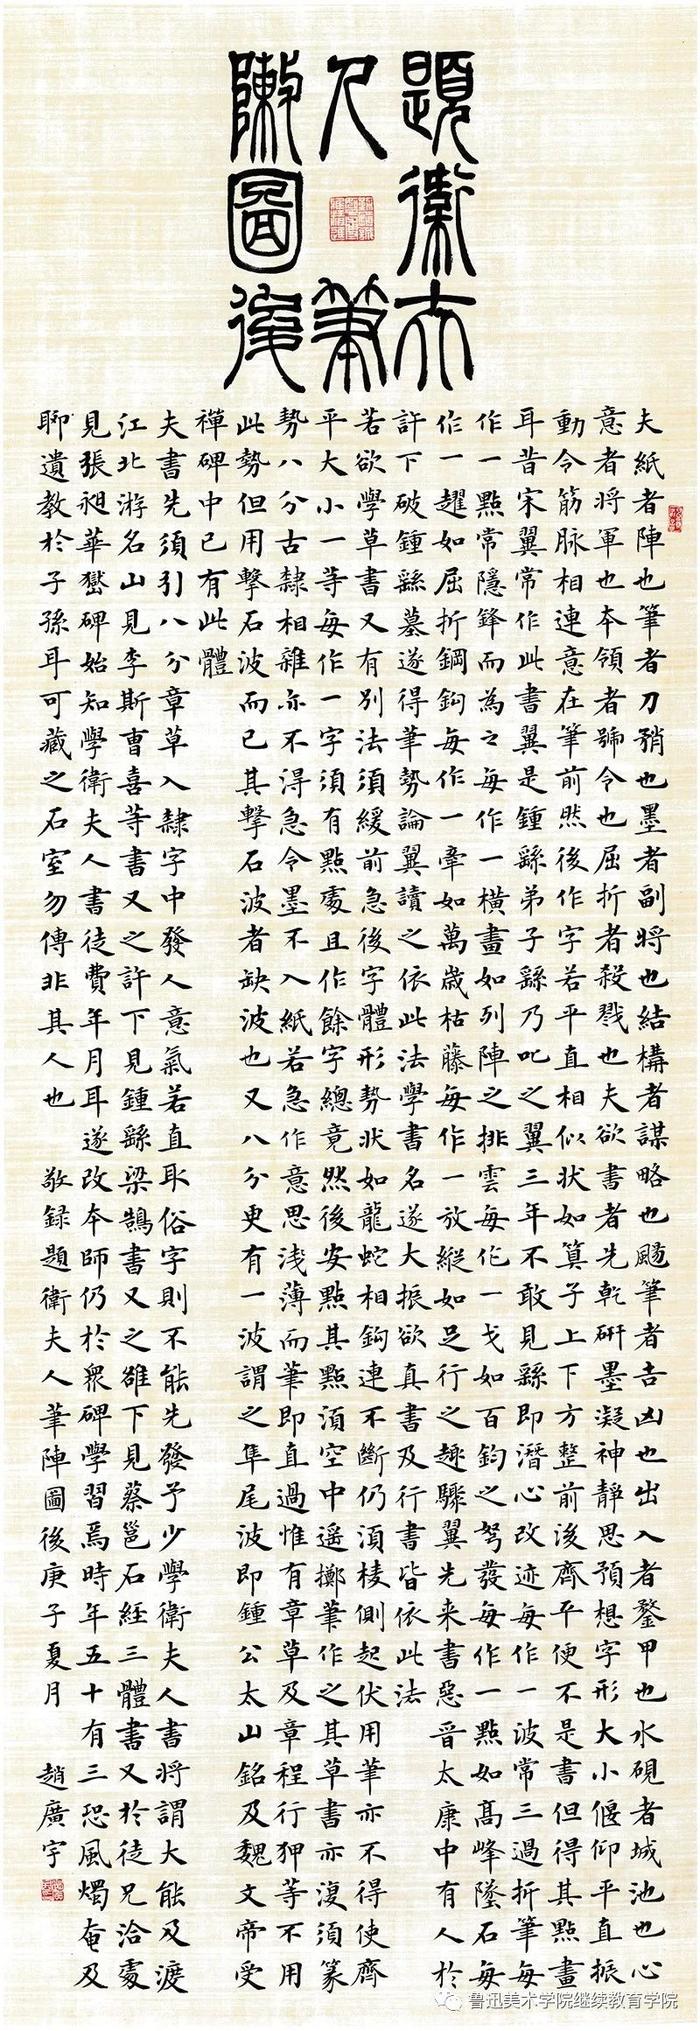 題衛夫
人筆
敶圖後
夫紙者陣也筆者刀矟也墨者副將也結構者謀略也颺筆者吉凶也出入者鍪甲也水硯者城池也心
意者將軍也本領者號令也屈折者殺戮也夫欲書者先乾研墨凝神靜思預想字形大小偃仰平直振
動令筋脉相連意在筆前然後作字若平直相似状如算子上下方整前後齊平便不是書但得其點畫
耳昔宋翼常作此書翼是鍾繇弟子繇乃叱之翼三年不敢見繇即潛心改迹每作一波常三過折筆每
作一點常隱鋒而為之每作一橫畫如列陣之排雲每作一戈如百鈞之弩發每作一點如高峰墜石每
作一趯如屈折鋼鉤每作一牽如萬歲枯藤每作一放縱如足行之趣驟翼先来書惡晉太康中有人於
許下破鍾繇墓遂得筆勢論翼讀之依此法學書名遂大振欲真書及行書皆依此法
若欲學草書又有別法須緩前急後字體形勢状如龍蛇相鉤連不斷仍須棱側起伏用筆亦不得使齊
平大小一等每作一字須有點處且作餘字總竟然後安點其點須空中遥擲筆作之其草書亦復須篆
勢八分古隸相雜亦不得急令墨不入紙若急作意思淺薄而筆即直過惟有章草及章程行狎等不用
此勢但用擊石波而已其擊石波者缺波也又八分更有一波謂之隼尾波即鍾公太山銘及魏文帝受
禪碑中已有此體
夫書先須引八分章草入隸字中發人意氣若直取俗字則不能先發予少學衛夫人書將謂大能及渡
江北游名山見李斯曹喜等書又之許下見鍾繇梁鵠書又之雒下見蔡邕石經三體書又於從兄洽處
見張昶華嶽碑始知學衛夫人書徒費年月耳遂改本師仍於衆碑學習焉時年五十有三恐風燭奄及
聊遺教於子孫耳可藏之石室勿傳非其人也 敬録題衛夫人筆陣圖後庚子夏月 趙廣宇
鲁迅美术学院继续教育学院